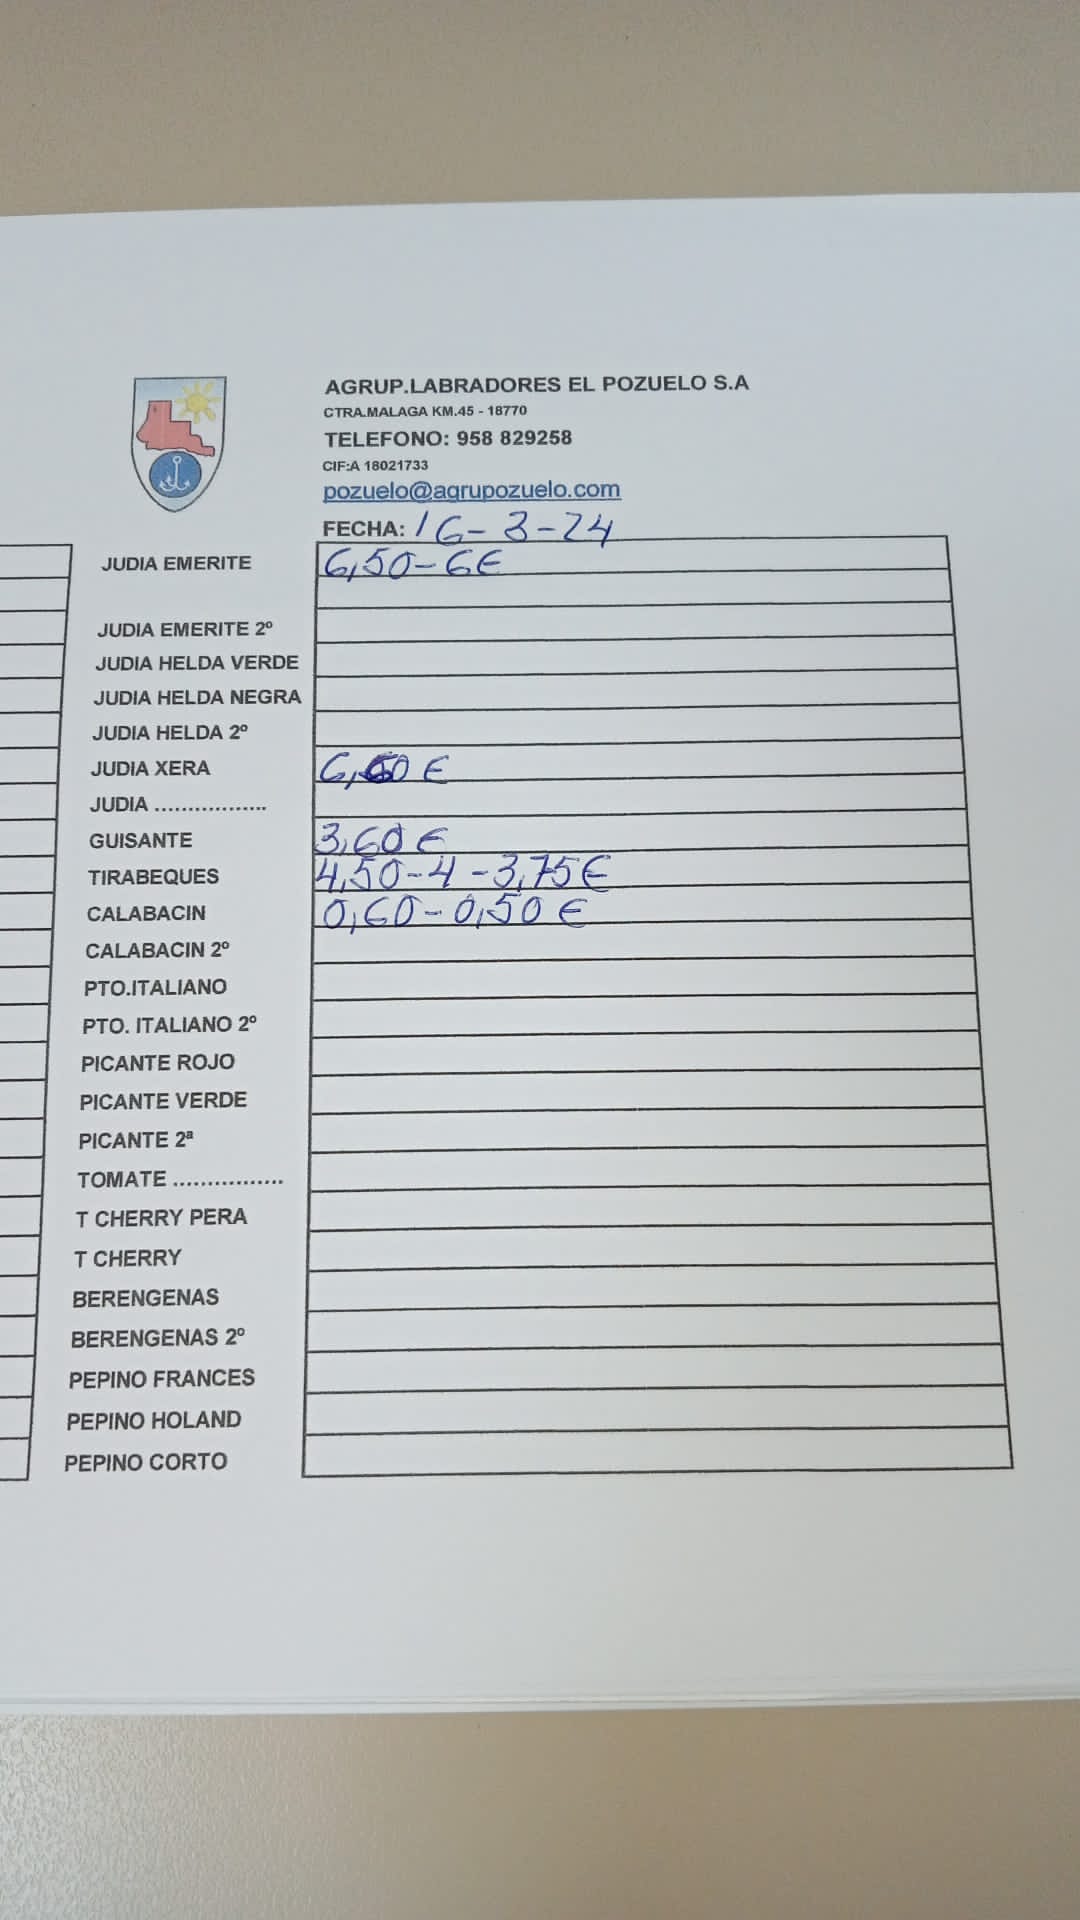 AGRUP.LABRADORES EL POZUELO S.A
CTRA.MALAGA KM.45 - 18770
TELEFONO: 958 829258
CIF:A 18021733
pozuelo@agrupozuelo.com
FECHA: 16-3-24
JUDIA EMERITE 6,50-6€
JUDIA EMERITE 2º
JUDIA HELDA VERDE
JUDIA HELDA NEGRA
JUDIA HELDA 2º
JUDIA XERA €
JUDIA .................
GUISANTE 3,60 €
TIRABEQUES 4,50-4-3,75€
CALABACIN 0,60-0,50 €
CALABACIN 2º
PTO.ITALIANO
PTO. ITALIANO 2º
PICANTE ROJO
PICANTE VERDE
PICANTE 2ª
TOMATE ................
T CHERRY PERA
T CHERRY
BERENGENAS
BERENGENAS 2º
PEPINO FRANCES
PEPINO HOLAND
PEPINO CORTO